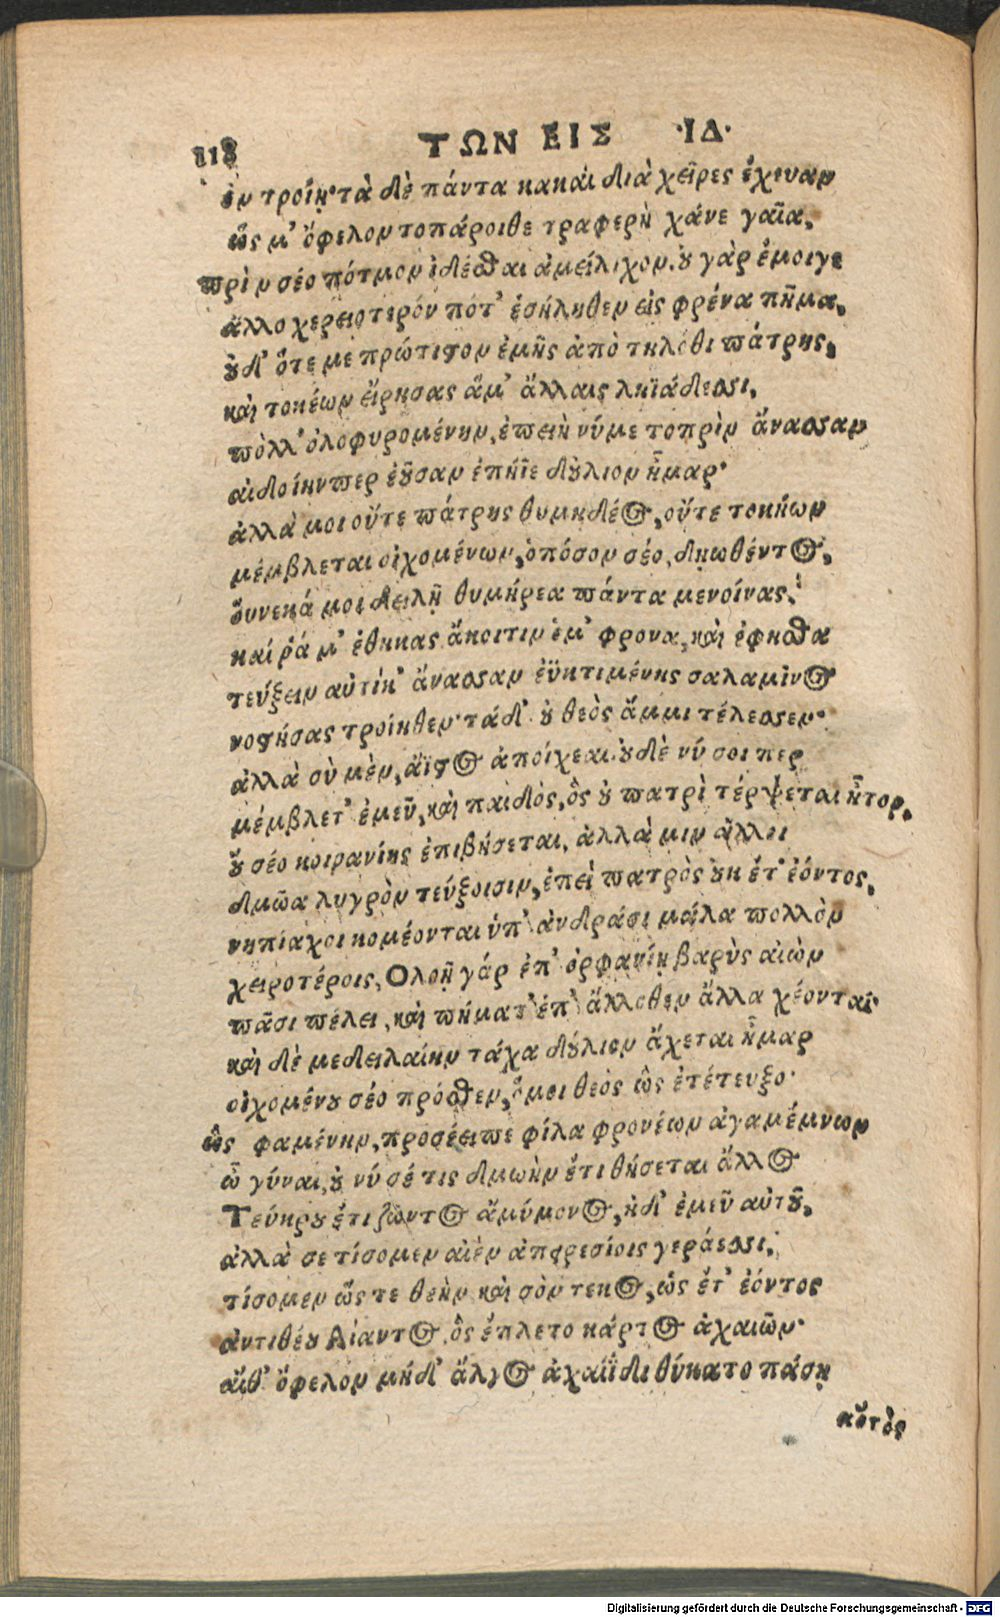 118 ΤΩΝ ΕΙΣ ·ΙΔ·
ἐν τροίῃ· τὰ δὲ πάντα κακαὶ διὰ χεῖρες ἔχευαν
ὥς μ' ὄφελον τοπάροιθε τραφερὴ χάνε γαῖα,
πρὶν σέο πότμον ἰδέσθαι ἀμείλιχον. οὐ γὰρ ἔμοιγε
ἄλλο χερειοτερόν ποτ' ἐσήληθεν εἰς φρένα πῆμα,
οὐδ' ὅτε με πρώτιστον ἐμῆς ἀπὸ τηλόθι πάτρης,
καὶ τοκέων εἴρησας ἅμ' ἄλλαις ληϊάδεσσι,
πὸλλ' ὀλοφυρομένην, ἐπειὴ νύ με τοπρὶν ἄνασσαν
αἰδοίην περ ἐοῦσαν ἐπήϊε δούλιον ἦμαρ·
ἀλλά μοι οὔτε πάτρης θυμηδέος, οὔτε τοκήων
μέμβλεται οἰχομένων, ὁπόσον σέο, δῃωθέντος,
οὕνεκά μοι δειλῇ θυμήρεα πάντα μενοίνας,
καί ῥά μ' ἔθηκας ἄκοιτιν ἐμ' φρονα, καὶ ἐφησθα
τεύξειν αὐτίκ' ἄνασσαν ἐϋκτιμένης σαλαμῖνος
νοστήσας τροίηθεν· τάδ' οὐ θεὸς ἄμμι τέλεσσεν·
ἀλλὰ σὺ μὲν, ἄϊστος ἀποίχεαι. οὐδὲ νύ σοι περ
μέμβλετ' ἐμεῦ, καὶ παιδός, ὃς οὐ πατρὶ τέρψεται ἦτορ,
οὔ σέο κοιρανίης ἐπιβήσεται, ἀλλά μιν ἄλλοι
δμῶα λυγρὸν τεύξοισιν, ἐπεὶ πατρὸς οὐκ ἔτ' ἐόντος,
νηπίαχοι κομέονται ὑπ' ἀνδράσι μάλα πολλὸν
χειροτέροις, Ὀλοῇ γάρ ἐπ' ὀρφανίῃ βαρὺς αἰὼν
πᾶσι πέλει, καὶ πήματ' ἐπ' ἄλλοθεν ἄλλα χέονται·
καὶ δὲ με δειλαίην τάχα δούλιον ἄχεται ἦμαρ
οἰχομένου σέο πρόσθεν, ὅ μοι θεὸς ὣς ἐτέτευξο·
ὣς φαμένην, προσέειπε φίλα φρονέων ἀγαμέμνων
ὦ γύναι, οὐ νύ σέ τις δμωὴν ἔτι θήσεται ἄλλος
Τεύκρου ἔτι ζῶντος ἀμύμονος, ἠδ' ἐμεῦ αὐτοῦ,
ἀλλὰ σε τίσομεν αἰὲν ἀπρεσίοις γεράεσσι,
τίσομεν ὥς τε θεὴν καὶ σὸν τεκος, ὡς ἔτ' ἐόντος
ἀντιθέου Αἴαντος ὃς ἔπλετο κάρτος ἀχαιῶν·
αἴθ' ὄφελον μήδ' ἄλγος ἀχαιΐδι θύκατο πάσῃ
κοῦτὸς
Digitalisierung gefördert durch die Deutsche Forschungsgemeinschaft - DFG